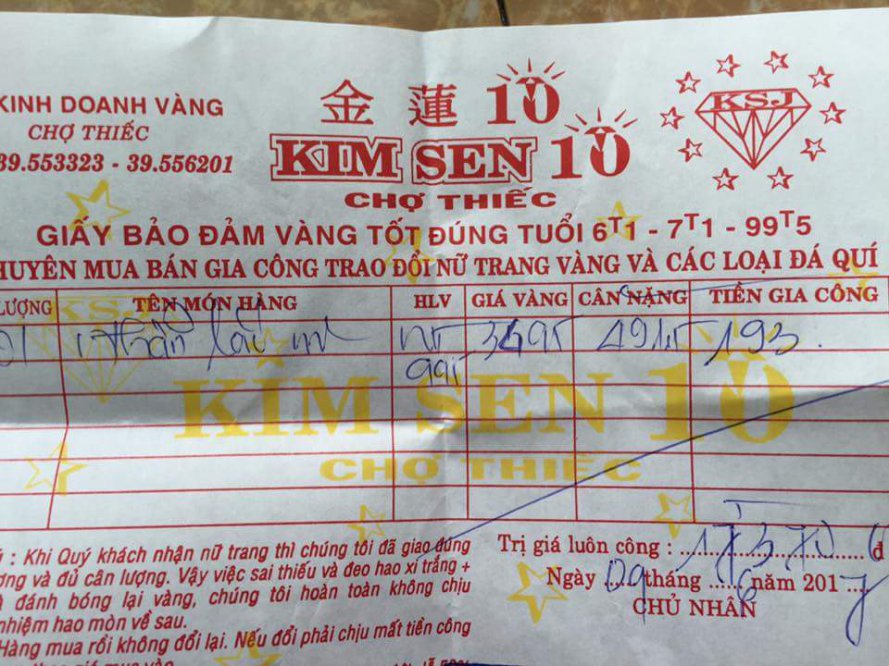 KINH DOANH VÀNG
CHỢ THIẾC
39.553323 - 39.556201
金蓮 10
KIM SEN 10
CHỢ THIẾC
KSJ
GIẤY BẢO ĐẢM VÀNG TỐT ĐÚNG TUỔI 6T1 - 7T1 - 99T5
HUYÊN MUA BÁN GIA CÔNG TRAO ĐỔI NỮ TRANG VÀNG VÀ CÁC LOẠI ĐÁ QUÍ
LƯỢNG TÊN MÓN HÀNG HLV GIÁ VÀNG CÂN NẶNG TIỀN GIA CÔNG
01 nhẫn 193
KSJ
KIM SEN 10
CHỢ THIẾC
: Khi Quý khách nhận nữ trang thì chúng tôi đã giao đúng
ợng và đủ cân lượng. Vậy việc sai thiếu và đeo hao xi trắng +
đánh bóng lại vàng, chúng tôi hoàn toàn không chịu
nhiệm hao mòn về sau.
Hàng mua rồi không đổi lại. Nếu đổi phải chịu mất tiền công
Trị giá luôn công : đ
Ngày 09 tháng 6 năm 2017
CHỦ NHÂN